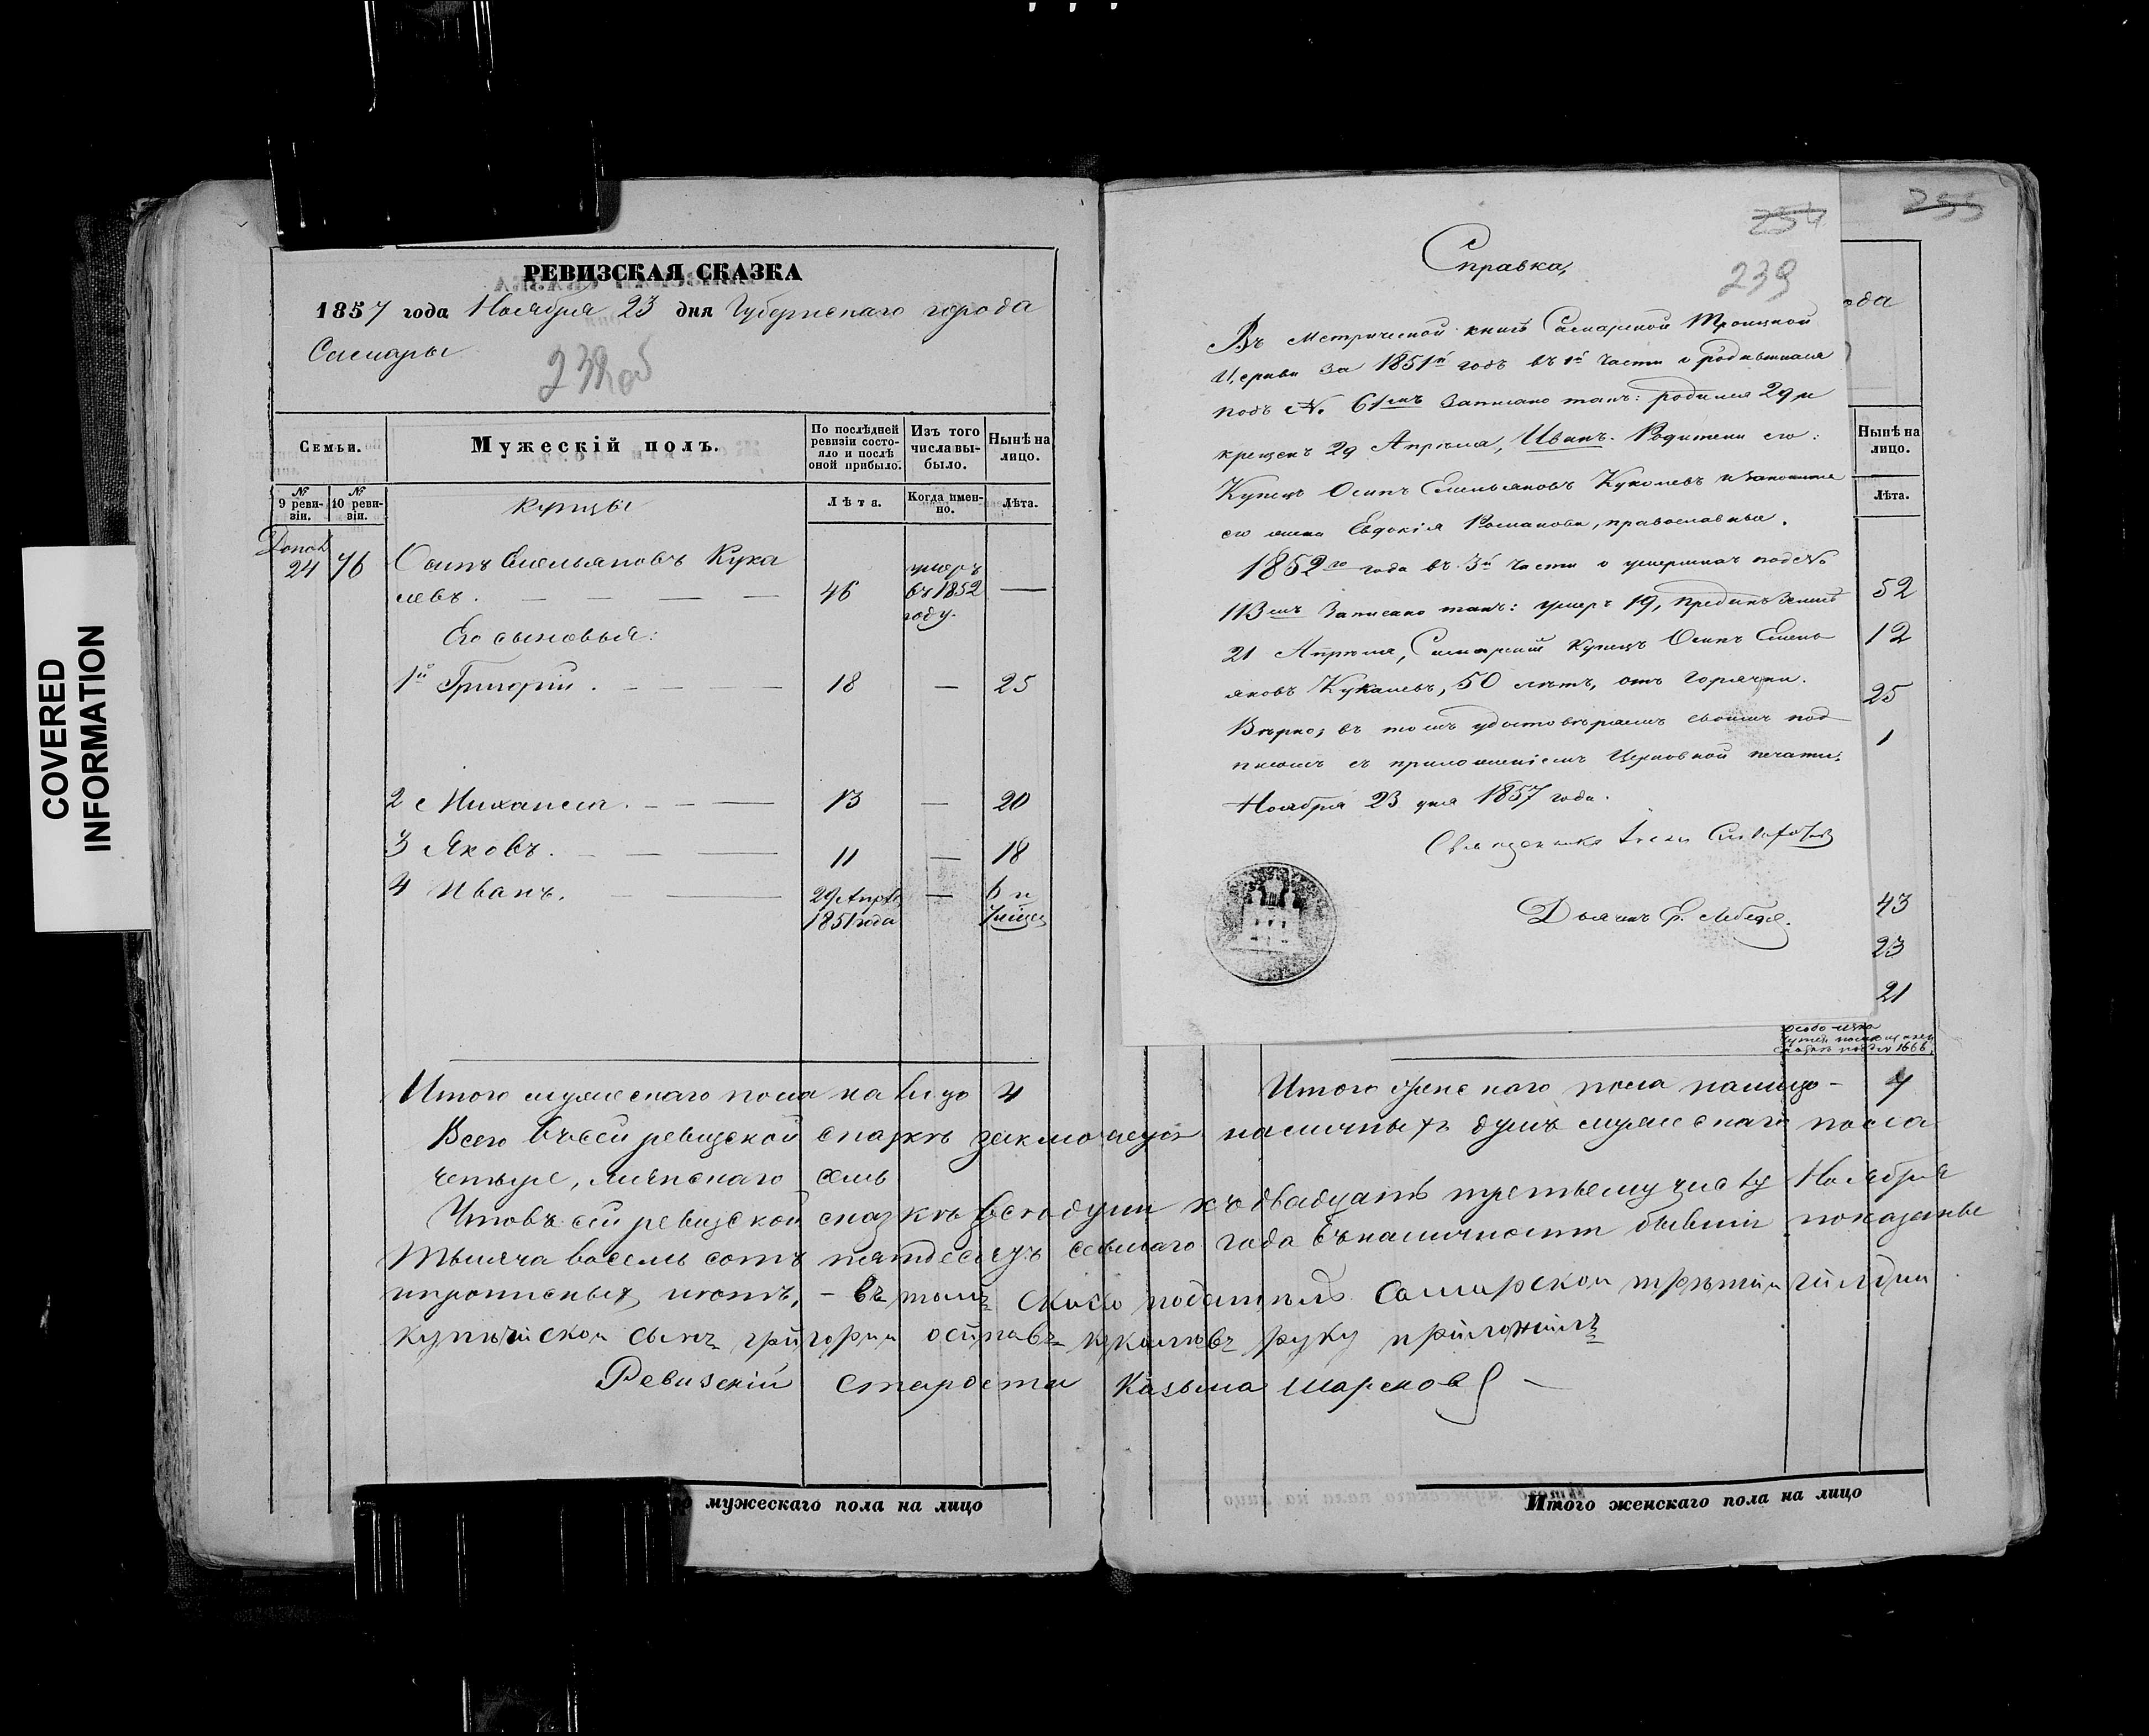 COVERED
INFORMATION
РЕВИЗСКАЯ СКАЗКА
1857 года Ноября 23 дня Губернскаго города
Самары
Семьи.
Мужескій полъ.
По послѣдней ревизіи состояло и послѣ оной прибыло.
Изъ того числа выбыло.
Нынѣ на лицо.
№ 9 ревизіи.
№ 10 ревизіи.
Купцы
Лѣта.
Когда именно.
Лѣта.
24 76 Осипъ Емельяновъ Кука
левъ. 46 умеръ въ 1852 году. —
Его сыновья:
1й Григорій. 18 — 25
2 Михаилъ. 13 — 20
3 Яковъ. 11 — 18
4 Иванъ. 29 Апрѣ. 1851 года — 6 и 7 мѣсец
Итого мужескаго пола на лицо 4
мужескаго пола на лицо
254
255
Справка,
239
Въ Метрической книгѣ Самарской Троицкой
Церкви за 1851й годъ въ 1й части о родившихся
подъ № 61мъ записано такъ: родился 29 и
крещенъ 29 Апрѣля, Иванъ. Родители его:
Купецъ Осипъ Емельяновъ Куколевъ и законная
его жена Евдокія Романова, православные.
1852го года въ 3й части о умершихъ подъ №
113мъ записано такъ: умеръ 19, преданъ землѣ
21 Апрѣля, Самарскій купецъ Осипъ Емель
яновъ Кукалевъ, 50 лѣтъ, отъ горячки.
Вѣрно; въ томъ удостовѣряемъ своимъ под
писомъ съ приложеніемъ Церковной печати.
Ноября 23 дня 1857 года.
Священникъ
Дьячекъ
ода
Нынѣ на лицо.
Лѣта.
52
12
25
1
43
23
21
Итого женскаго пола налицо - 7
Всего въ сей ревизской сказкѣ заключается наличныхъ душъ мужескаго пола
четыре, женскаго семь
Что въ сей ревизской сказкѣ всѣ души къ двадцать третьему числу Ноября
тысяча восемь сотъ пятдесятъ седьмаго года въ наличности бывшіи показаны
и прописныхъ нѣтъ, - въ томъ сказко податель Самарскои третии гилдии
купѣческои сынъ григории осиповъ кукалевъ руку приложилъ
Ревизскій староста Казьма
Итого женскаго пола на лицо